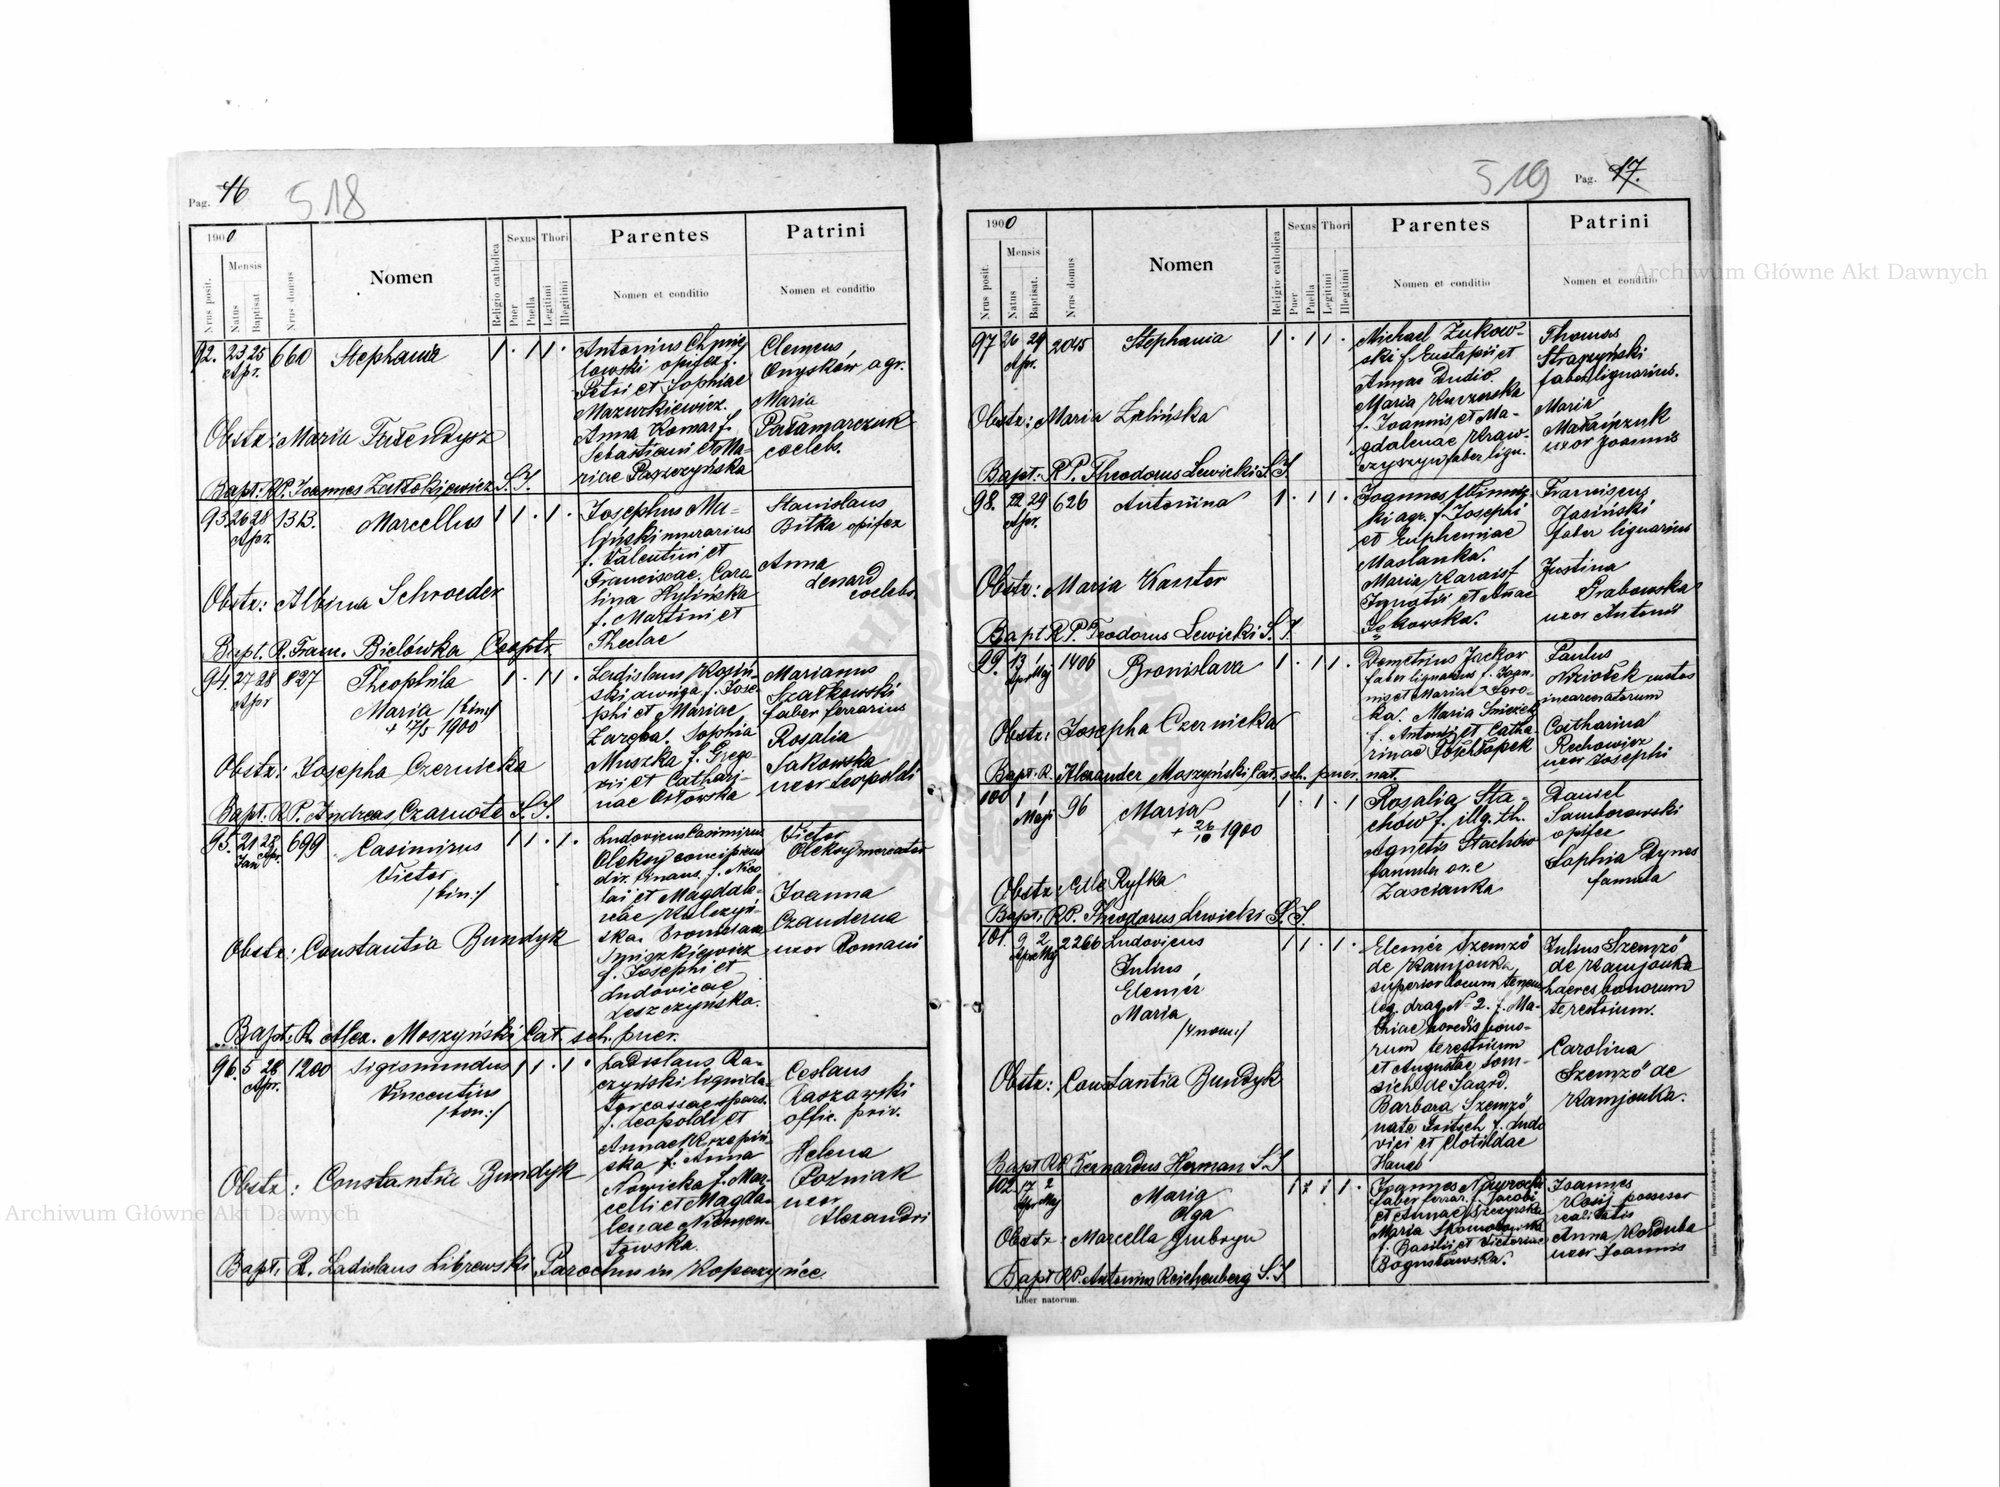 Pag. 16
518
1900
Nrus posit.
Mensis
Natus
Baptisat.
Nrus domus
Nomen
Religio catholica
Sexus
Puer
Puella
Thori
Legitimi
Illegitimi
Parentes
Nomen et conditio
Patrini
Nomen et conditio
92. 23 25 Apr. 660 Stephania 1 . 1 1 .
Antonius
lowski opifex f.
Petri et Sophiae
Mazurkiewicz.
Anna Komar f.
Sebastiani et Ma-
riae Paszczyńska
Clemens
Onysków agr.
Maria
Pałamarczuk
coelebs.
Obstr: Maria
Bapt: RP. Joannes Załłokiewicz S.J.
93. 26 28 Apr. 1313. Marcellus 1 1 . 1 .
Josephus Ma-
liński murarius
f. Valentini et
Franciscae. Caro-
lina Hylińska
f. Martini et
Theclae
Stanislaus
Bitka opifex
Anna
Lenard
coelebs.
Obstr: Albina Schroeder
Bapt. R. Franc. Bielówka Cooptr.
94. 27 28 Apr 827 Theophila 1 . 1 1 .
Maria /:bin:/
+ 17/5 1900
Ladislaus Kosiń-
ski auriga f. Jose-
phi et Mariae
Zargba. Sophia
Muszka f. Grego-
rii et Cathari-
nae Osłowska
Marianus
Szatkowski
faber ferrarius
Rosalia
Sakowska
uxor Leopoldi
Obstr: Josepha Czernicka
Bapt. RP. Andreas Czarnota S.J.
95. 21 28 Jan Apr. 699 Casimirus 1 1 . 1 .
Victor
/:bin:/
Ludovicus Casimirus
Oleksy concipiens
dir. finans. f. Nico-
lai et Magdale-
nae Kulczyń-
ska. Bronislava
Śmiszkiewicz
f. Josephi et
Ludovicae
Leszczyńska.
Victor
Oleksy mercator
Joanna
Czanderna
uxor Romani
Obstr: Constantia Bundyk
Bapt: R. Alex. Moszyński Cat. sch. puer.
96. 5 28 Apr. 1200 Sigismundus 1 1 . 1 .
Vincentius
/:bin:/
Ladislaus Ra-
czyński liquida-
tor cassae spars.
f. Leopoldi et
Annae Krzepiń-
ska f. Anna
Nowicka f. Mar-
celli et Magda-
lenae Niemen-
towska.
Ceslaus
Raszawski
offic. priv.
Helena
Poźniak
uxor
Alexandri
Obstr: Constantia Bundyk
Bapt. R. Ladislaus Librewski Parochus in Kopeczyńce
Pag. 17.
519
1900
Nrus posit.
Mensis
Natus
Baptisat.
Nrus domus
Nomen
Religio catholica
Sexus
Puer
Puella
Thori
Legitimi
Illegitimi
Parentes
Nomen et conditio
Patrini
Nomen et conditio
97 26 29 Apr. 2045 Stephania 1 . 1 1 .
Michael Żukow-
ski f. Eustaphi et
Annae Dudio.
Maria Kuczerska
f. Joannis et Ma-
gdalenae Kraw-
czyszyn faber lign.
Thomas
Strapzyński
faber lignarius.
Maria
Matańczuk
uxor Joannis
Obstr: Maria Zielińska
Bapt: RP. Theodorus Lewicki S.J.
98. 22 29 Apr. 626 Antonina 1 . 1 1 .
Joannes Winnic-
ki agr. f. Josephi
et Eupheniae
Maslanka.
Maria Karais f.
Ignatii et Annae
Żukowska.
Franciscus
Jasiński
faber lignarius
Justina
Grabowska
uxor Antonii
Obstr: Maria Kantor
Bapt RP. Teodorus Lewicki S.J.
99. 13 1 Apr Maj 1406 Bronislava 1 . 1 1 .
Demetrius Jackow
faber lignarius f. Joan-
nis et Mariae Soro-
ka. Maria Śnieżek
f. Antonii et Catha-
rinae Pochłopek
Paulus
Niziołek custos
incarceratorum
Catharina
Rechowicz
uxor Josephi
Obstr: Josepha Czernicka
Bapt. R. Alexander Moszyński Cat. sch. puer. nat.
100 1 1 Maji 96 Maria 1 . 1 . 1
+ 26/10 1900
Rosalia Sta-
chow f. illg. th.
Agnetis Stachów
famula ore
Zascianka
Daniel
Samborowski
opifex
Sophia Dynes
famula
Obstr: Elle Ryfka
Bapt: RP. Theodorus Lewicki S.J.
101. 9 2 Apr Maj 2266 Ludovicus 1 1 . 1 .
Julius
Elemér
Maria
/:4 nom:/
Elemér Szemző
de Kamjonka
superior locum tenens
leg. drag. N. 2. f. Ma-
thiae heredis bono-
rum terestrium
et Augustae Som-
sich de Saard.
Barbara Szemző
nata Fritsch f. Ludo-
vici et Clotildae
Haneš
Julius Szemző
de Kamjonka
haeres bonorum
terestrium.
Carolina
Szemző de
Kamjonka.
Obstr: Constantia Bundyk
Bapt RP. Bernardus Herman S.J
102. 17 2 Apr Maj Maria 1 . 1 1 .
Olga
Joannes Nawrocki
faber ferrar. f. Jacobi
et Annae Szczyrska
Maria Skomorowska
f. Basilii et Victoriae
Bogusławska.
Joannes
Kosij possesor
realitatis
Anna Korduba
uxor Joannis
Obstr: Marcella Gruboyn
Bapt RP. Antonius Reichenberg S.J
Liber natorum.
Archiwum Główne Akt Dawnych
Archiwum Główne Akt Dawnych